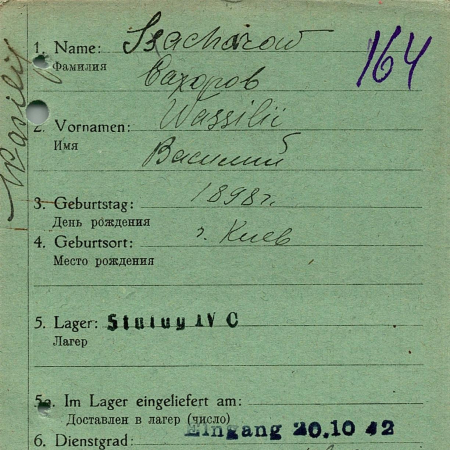 1. Name: Ssacharow
Фамилия Сахаров
164
Wassilij
2. Vornamen: Wassilii
Имя Василий
3. Geburtstag: 1898г.
День рождения
4. Geburtsort: г. Киев
Место рождения
5. Lager: Stalag IV C
Лагерь
5a. Im Lager eingeliefert am:
Доставлен в лагер (число)
Eingang 20.10 42
6. Dienstgrad: